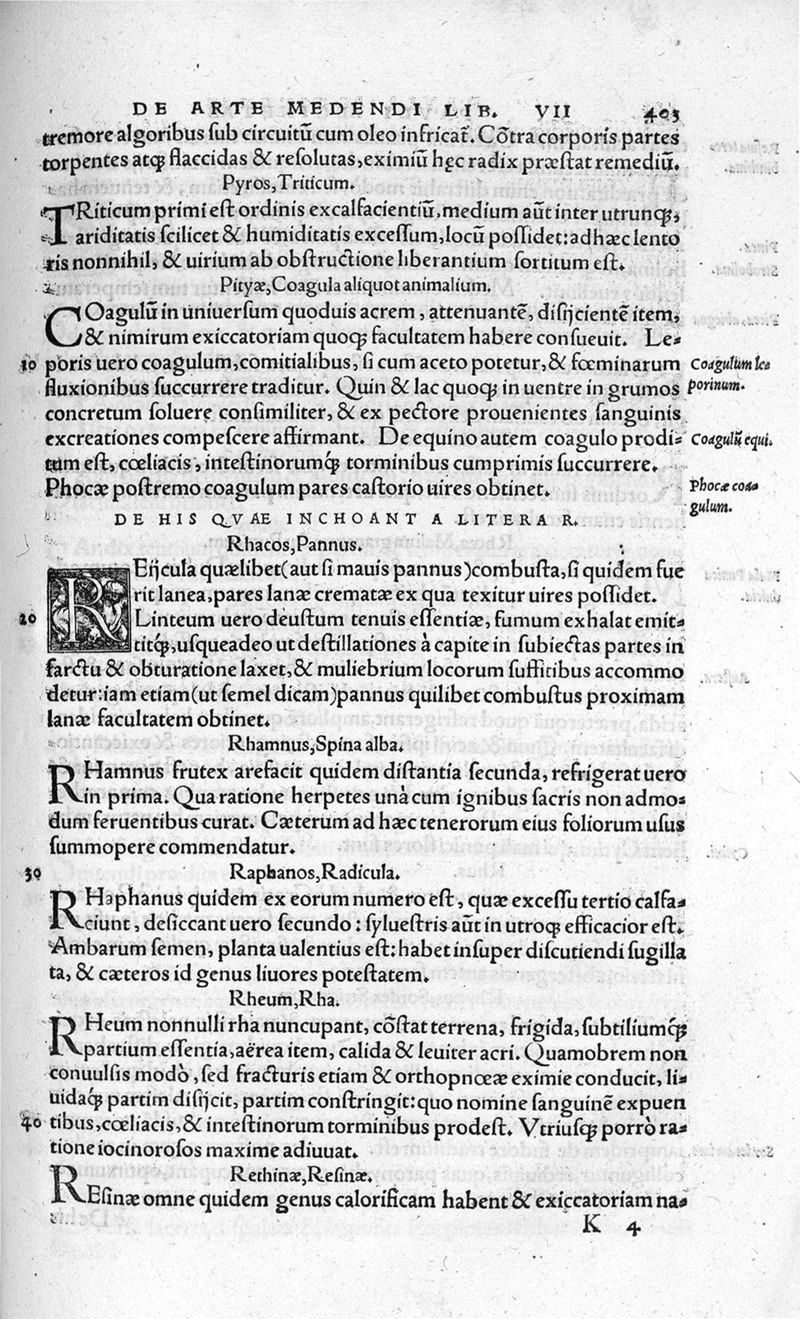 DE ARTE MEDENDI LIB. VII 403
tremore algoribus ſub circuitũ cum oleo infricat̃. Cõtra corporis partes
torpentes atq; flaccidas & reſolutas, eximiũ hęc radix præſtat remediũ.
Pyros, Triticum.
TRiticum primi eſt ordinis excalfacientiũ, medium aũt inter utrunq;,
ariditatis ſcilicet & humiditatis exceſſum, locũ poſſidet: ad hæc lento
ris nonnihil, & uirium ab obſtructione liberantium ſortitum eſt.
Pityæ, Coagula aliquot animalium.
COagulũ in uniuerſum quoduis acrem, attenuantẽ, diſijcientẽ item,
& nimirum exiccatoriam quoq; facultatem habere conſueuit. Le-
10 poris uero coagulum, comitialibus, ſi cum aceto potetur, & fœminarum Coagulum le
fluxionibus ſuccurrere traditur. Quin & lac quoq; in uentre in grumos porinum.
concretum ſoluere conſimiliter, & ex pectore prouenientes ſanguinis
excreationes compeſcere affirmant. De equino autem coagulo prodi- Coagulũ equi.
tum eſt, cœliacis, inteſtinorumq́; torminibus cumprimis ſuccurrere.
Phocæ poſtremo coagulum pares caſtorio uires obtinet. Phocæ coa-
gulum.
DE HIS QVAE INCHOANT A LITERA R.
Rhacos, Pannus.
REijcula quælibet (aut ſi mauis pannus) combuſta, ſi quidem fue
rit lanea, pares lanæ crematæ ex qua texitur uires poſſidet.
20 Linteum uero deuſtum tenuis eſſentiæ, fumum exhalat emit-
titq́;, uſqueadeo ut deſtillationes à capite in ſubiectas partes in
farctu & obturatione laxet, & muliebrium locorum ſuffitibus accommo
detur: iam etiam (ut ſemel dicam) pannus quilibet combuſtus proximam
lanæ facultatem obtinet.
Rhamnus, Spina alba.
RHamnus frutex arefacit quidem diſtantia ſecunda, refrigerat uero
in prima. Qua ratione herpetes unà cum ignibus ſacris non admo-
dum feruentibus curat. Cæterum ad hæc tenerorum eius foliorum uſus
ſummopere commendatur.
30 Raphanos, Radicula.
RHaphanus quidem ex eorum numero eſt, quæ exceſſu tertio calfa-
ciunt, deſiccant uero ſecundo: ſylueſtris aũt in utroq; efficacior eſt.
Ambarum ſemen, planta ualentius eſt: habet inſuper diſcutiendi ſugilla
ta, & cæteros id genus liuores poteſtatem.
Rheum, Rha.
RHeum nonnulli rha nuncupant, cõſtat terrena, frigida, ſubtiliumq́;
partium eſſentia, aërea item, calida & leuiter acri. Quamobrem non
conuulſis modò, ſed fracturis etiam & orthopnœæ eximie conducit, li-
uidaq́; partim diſijcit, partim conſtringit: quo nomine ſanguinẽ expuen
40 tibus, cœliacis, & inteſtinorum torminibus prodeſt. Vtriuſq; porrò ra-
tione iocinoroſos maxime adiuuat.
Rethinæ, Reſinæ.
REſinæ omne quidem genus calorificam habent & exiccatoriam na-
K 4